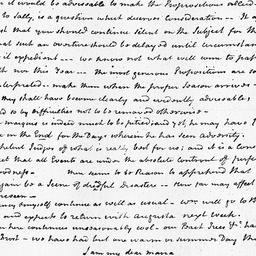 it would be adviseable to make the Propositions
to Sally, is a question which deserves consideration — It
that you should continue silent on the Subject for th
such an overture should be delayed until circumstan
it expedient — we know not what will come to pass
this Year — the most generous Propositions are so
interpreted. make them when the proper Season arrives
they shall have become clearly and evidently adviseable
by difficulties not to be removed otherwise
manner is indeed much to be pitied and yet he may have
in the End for the Days wherein he has seen adversity.
Judges of what is really best for us; and it is a Conso
that all Events are under the absolute controul of perfe
goodness — there seems to be Reason to apprehend that
again be a Scene of dreadful Disasters — How far may affect
foreseen —
Nancy & myself continue as well as usual — Wm. will go to B
and expects to return with Augusta next week.
here continues unseasonably cool — our Fruit Trees &c. ha
Frost — we have had but one warm or summer Day tha
I am my dear